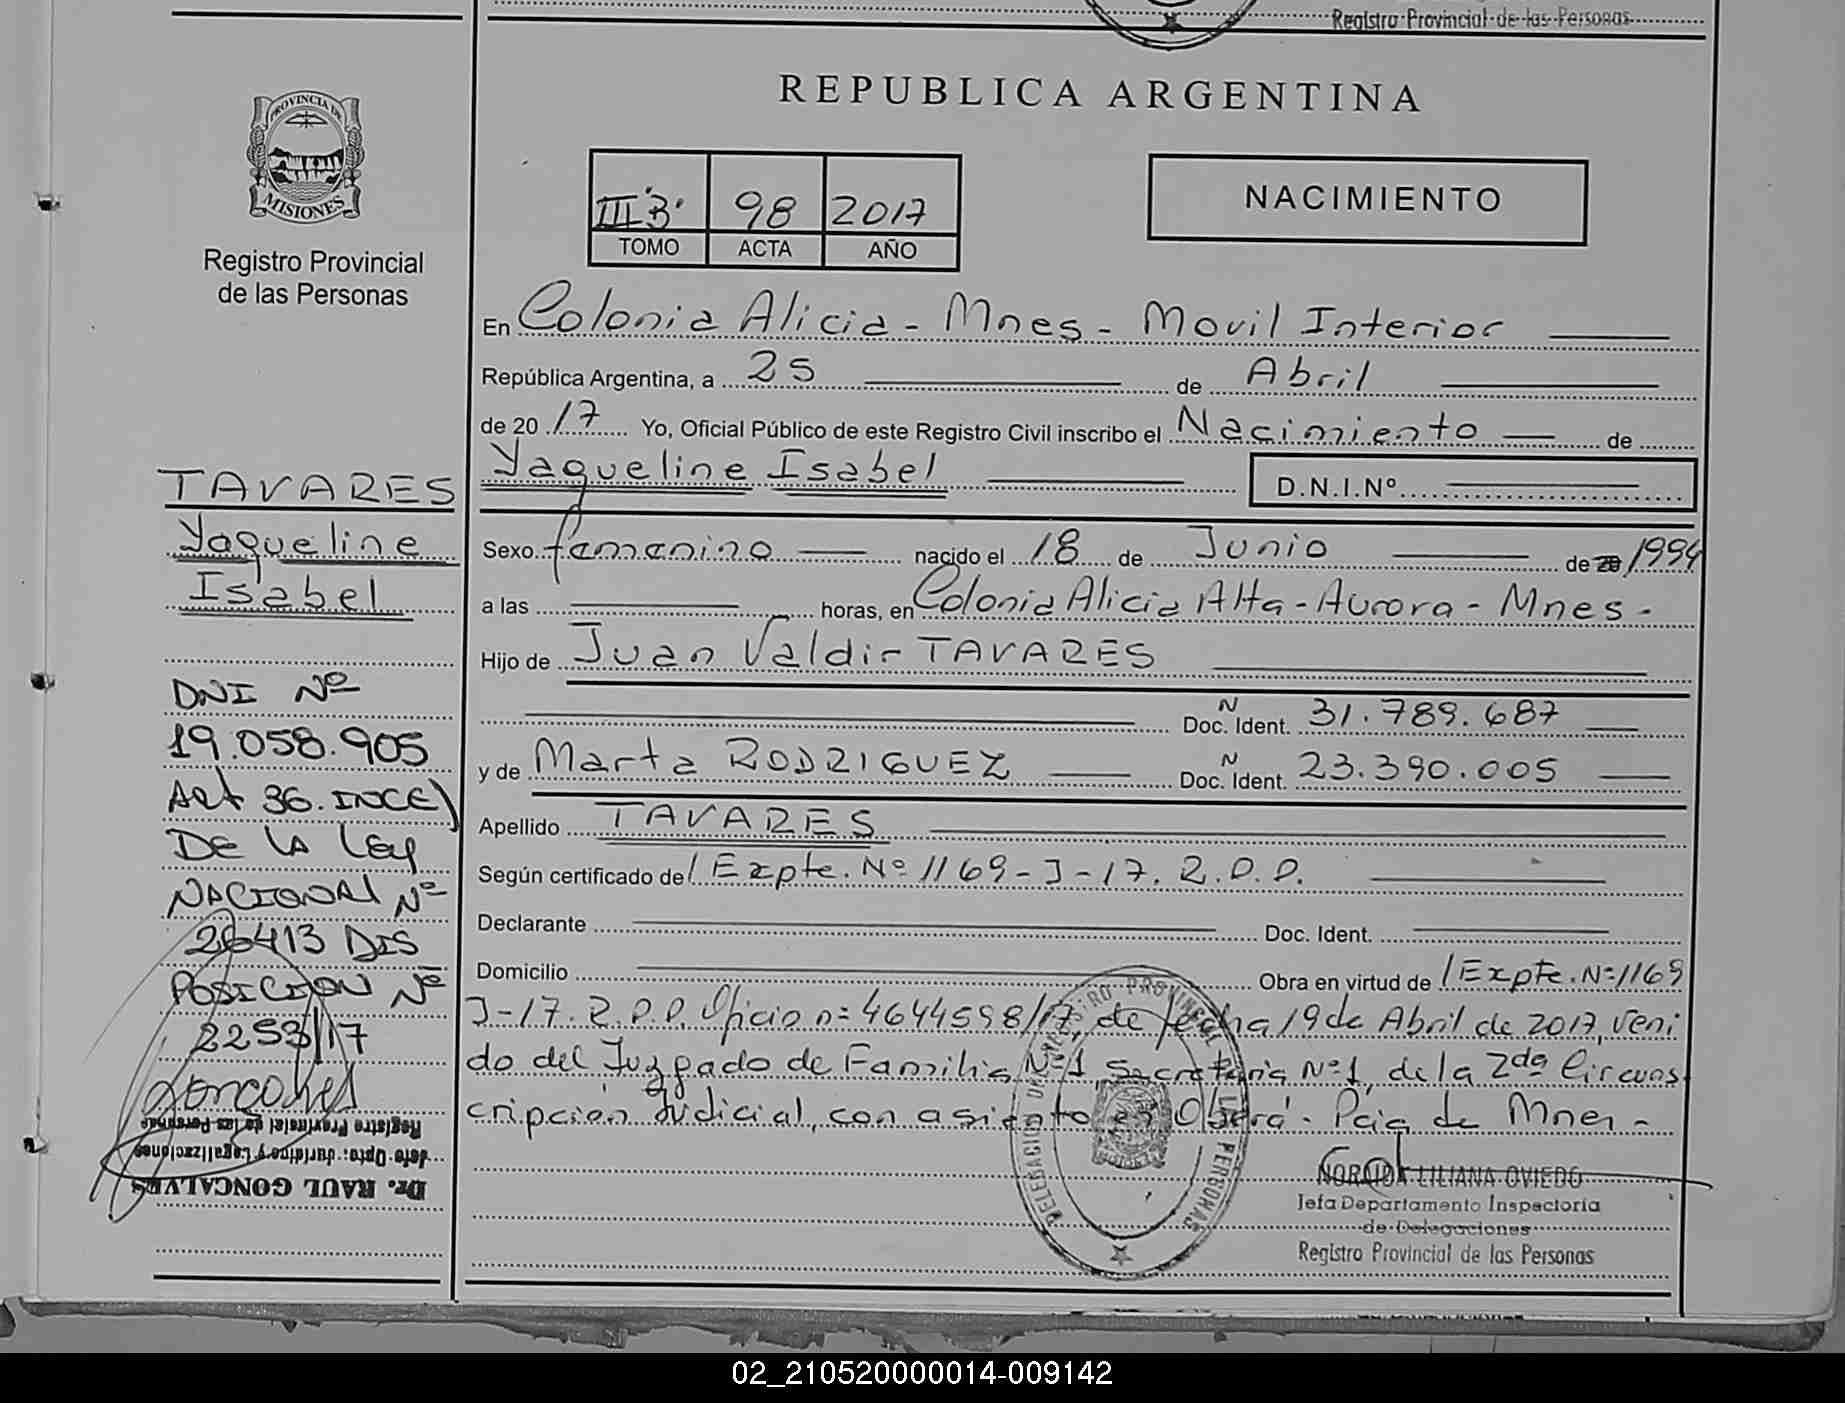 Registro Provincial de las Personas
REPUBLICA ARGENTINA
PROVINCIA DE
MISIONES
Registro Provincial
de las Personas
III "B" 98 2017
TOMO ACTA AÑO
NACIMIENTO
En Colonia Alicia - Mnes - Movil Interior
República Argentina, a 25 de Abril
de 20 17 Yo, Oficial Público de este Registro Civil inscribo el Nacimiento de
Yaqueline Isabel D.N.I.Nº
Sexo femenino nacido el 18 de Junio de 20 1994
a las horas, en Colonia Alicia Alta - Aurora - Mnes -
Hijo de Juan Valdir TAVARES
N
Doc. Ident. 31.789.687
N
y de Marta RODRIGUEZ Doc. Ident. 23.390.005
Apellido TAVARES
Según certificado de / Expte. Nº 1169-J-17. R.P.P.
Declarante Doc. Ident.
Domicilio Obra en virtud de / Expte. Nº 1169
J-17. R.P.P. Oficio nº 4644598/17, de fecha 19 de Abril de 2017, veni
do del Juzgado de Familia Nº 1, Secretaria Nº 1, de la 2da Circuns
cripción Judicial, con asiento en Oberá - Pcia de Mnes -
TAVARES
Yaqueline
Isabel
DNI Nº
19.058.905
Art 36. INC E)
De la Ley
NACIONAL Nº
26413 DIS
POSICION Nº
2253/17
Goncalves
Registro Provincial de las Personas
Jefe Dpto. Jurídico y Legalizaciones
Dr. RAUL GONCALVES
DELEGACION DEL REGISTRO PROVINCIAL DE LAS PERSONAS
NORAIDA LILIANA OVIEDO
Jefa Departamento Inspectoria
de Delegaciones
Registro Provincial de las Personas
02_210520000014-009142